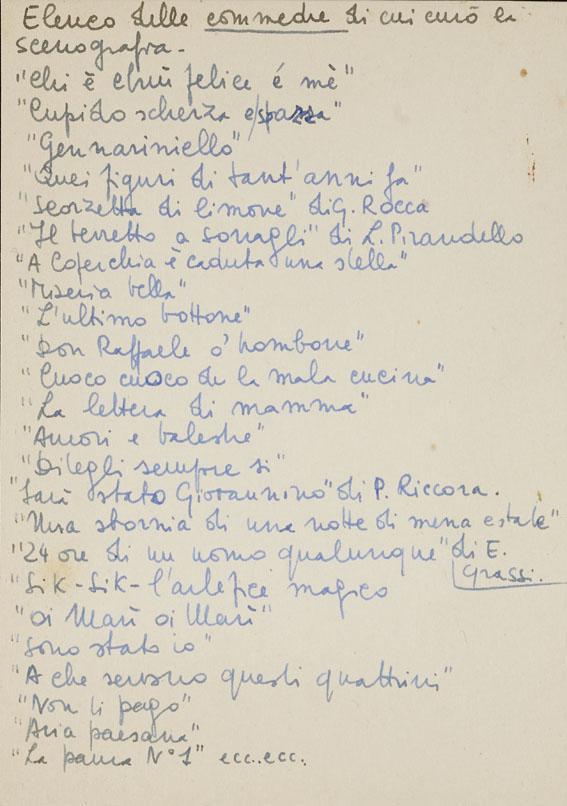 Elenco delle commedie di cui curò la
scenografia -
"Chi è chiù felice é mè"
"Cupido scherza e spazza"
"Gennariniello"
"Quei figuri di tant'anni fa"
"Scorzetta di limone" di G. Rocca
"Il berretto a sonagli" di L. Pirandello
"A Coperchia è caduta una stella"
"Miseria bella"
"L'ultimo bottone"
"Don Raffaele o' trombone"
"Cuoco cuoco de la mala cucina"
"La lettera di mamma"
"Amori e balestre"
"Ditegli sempre si"
"Sarà stato Giovannino" di P. Riccora.
"Una sbornia di una notte di mena estate"
"24 ore di un uomo qualunque" di E.
Grassi.
"Sik-Sik-l'artefice magico
"oi Marì oi Marì"
"Sono stato io"
"A che servono questi quattrini"
"Non ti pago"
"Aria paesana"
"La paura N°1" ecc..ecc..